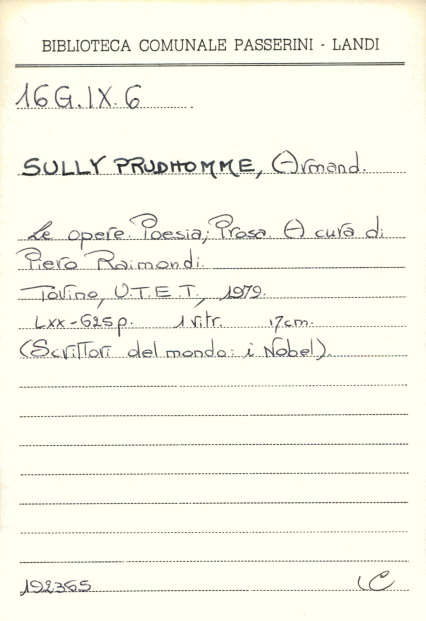 BIBLIOTECA COMUNALE PASSERINI - LANDI
16G.IX.6
SULLY PRUDHOMME, Armand.
Le opere. Poesia; Prosa. A cura di
Piero Raimondi.
Torino, U.T.E.T., 1979.
LXX-625p. 1 ritr. 17cm.
(Scrittori del mondo: i Nobel).
192365